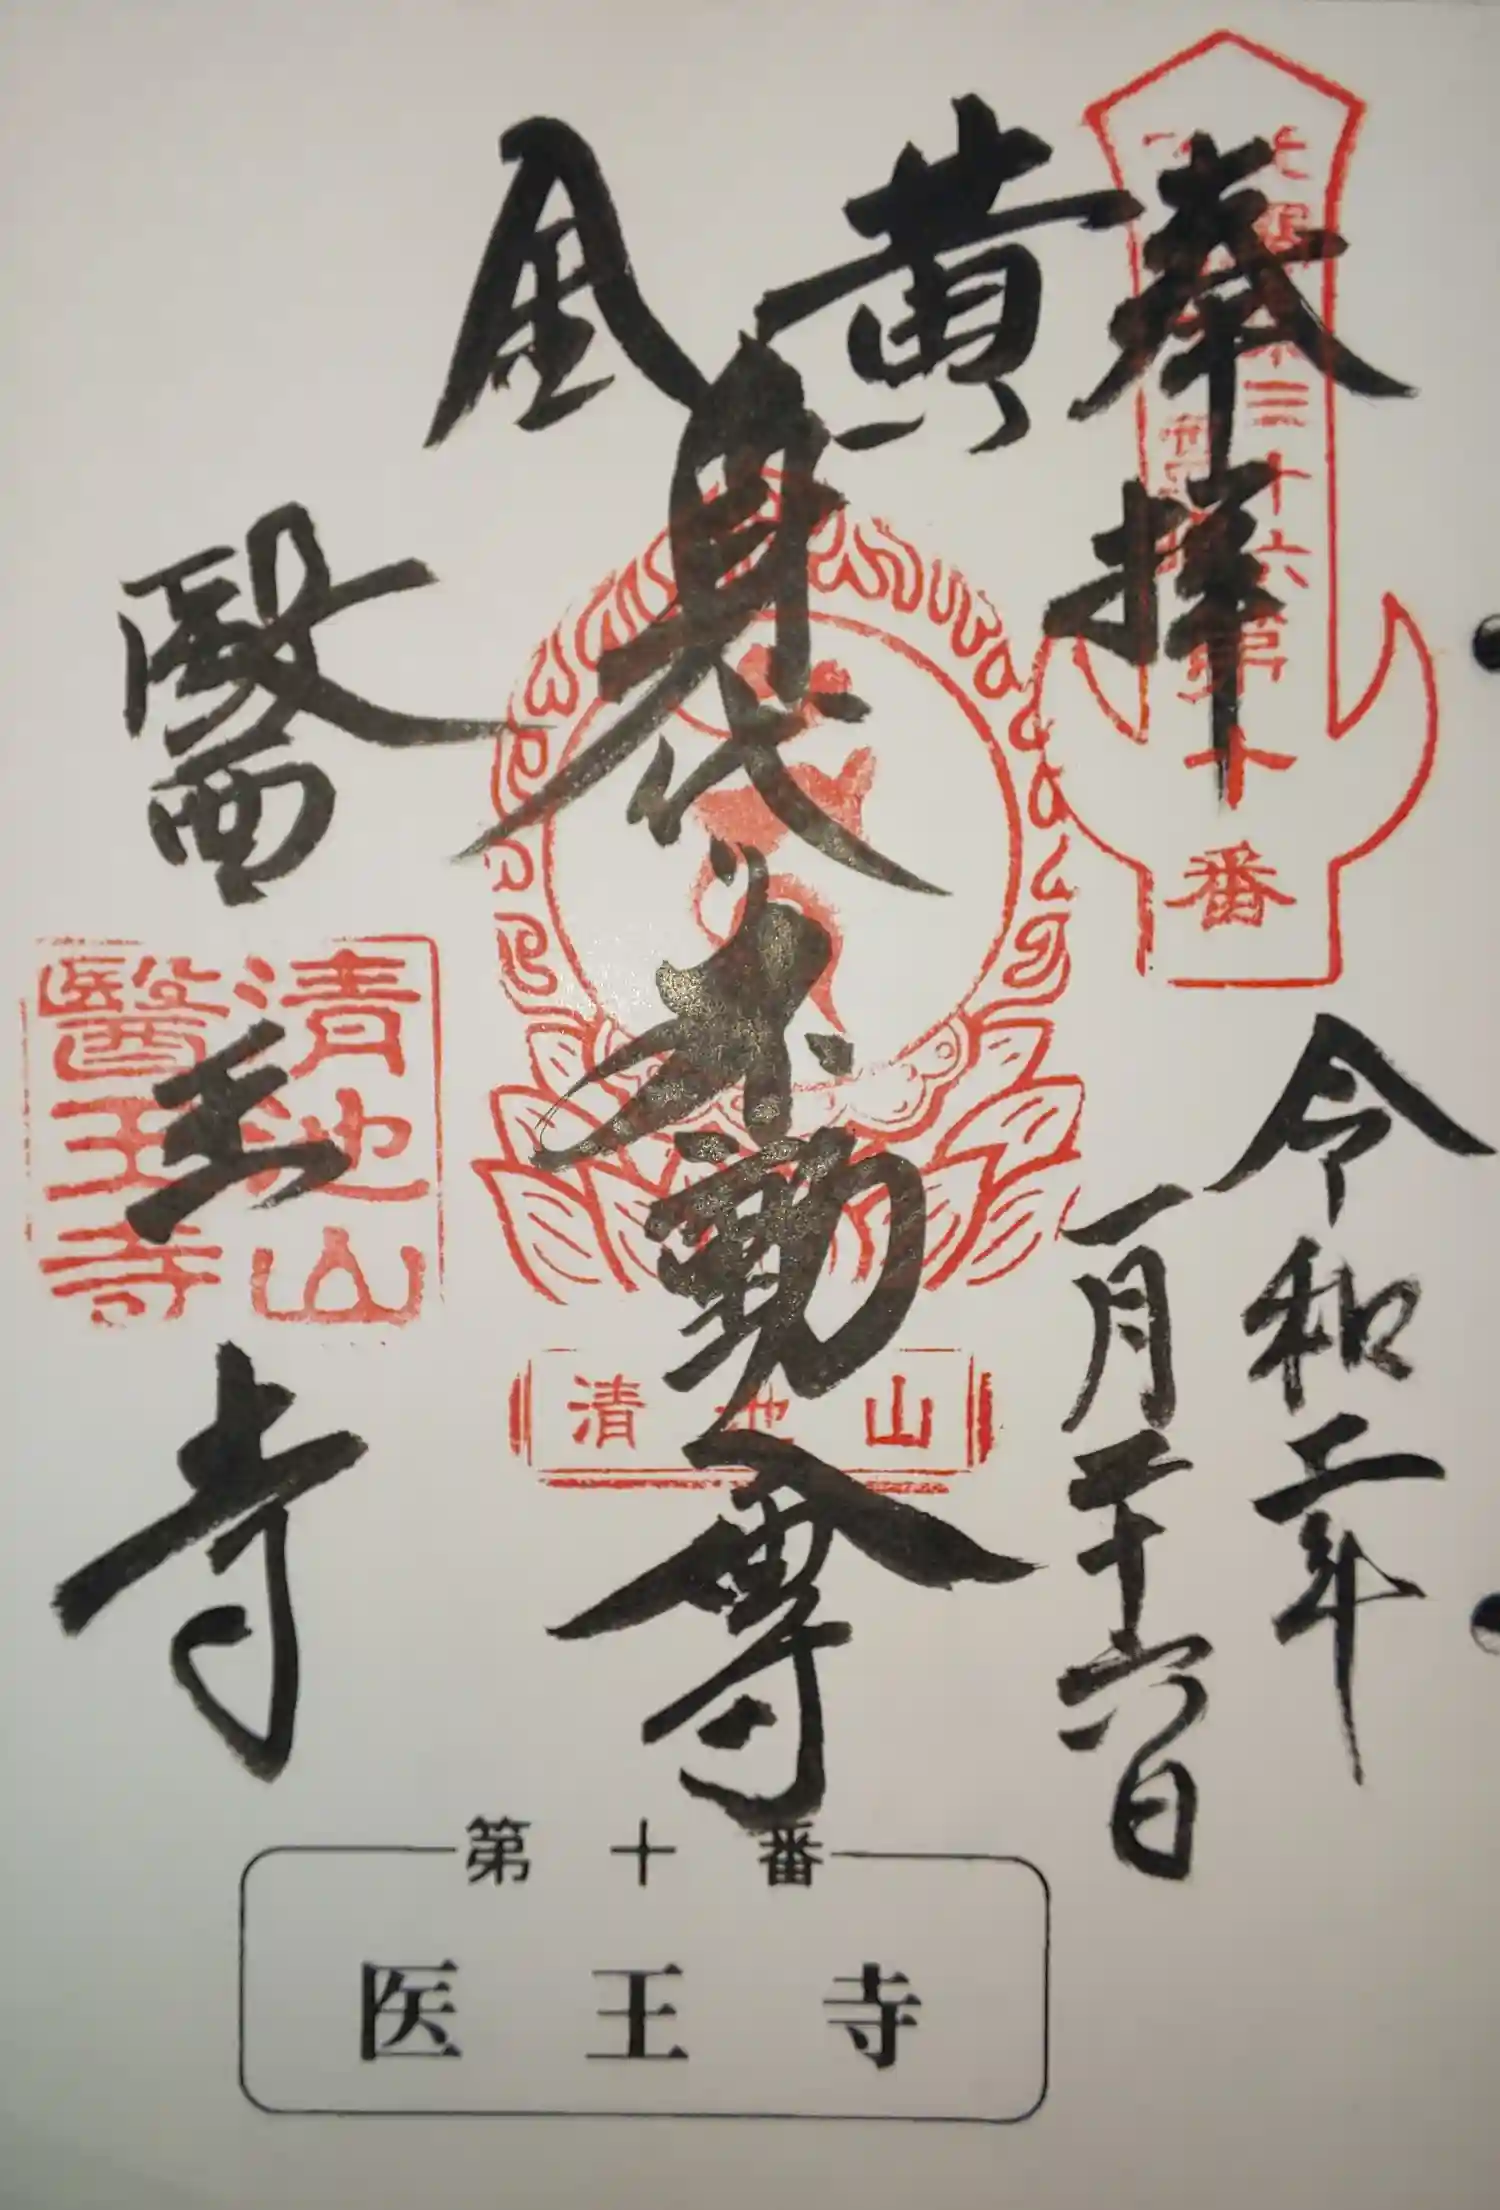 奉拝
三十六
第十番
令和二年
一月二十六日
黄金
身代不動尊
清池山
醫王寺
清池山
醫王寺
第十番
医王寺